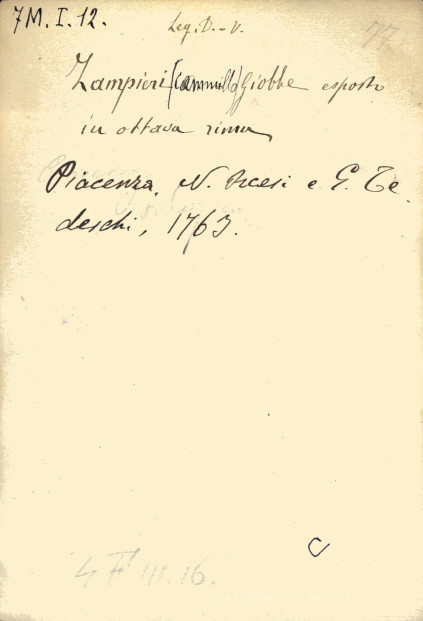 7 M. I. 12.
Leg. D.-V.
77
Zampieri (Cammillo) Giobbe esposto
in ottava rima
Piacenza, N. Orcesi e G. Te
deschi, 1763.
C
4 F III. 16.